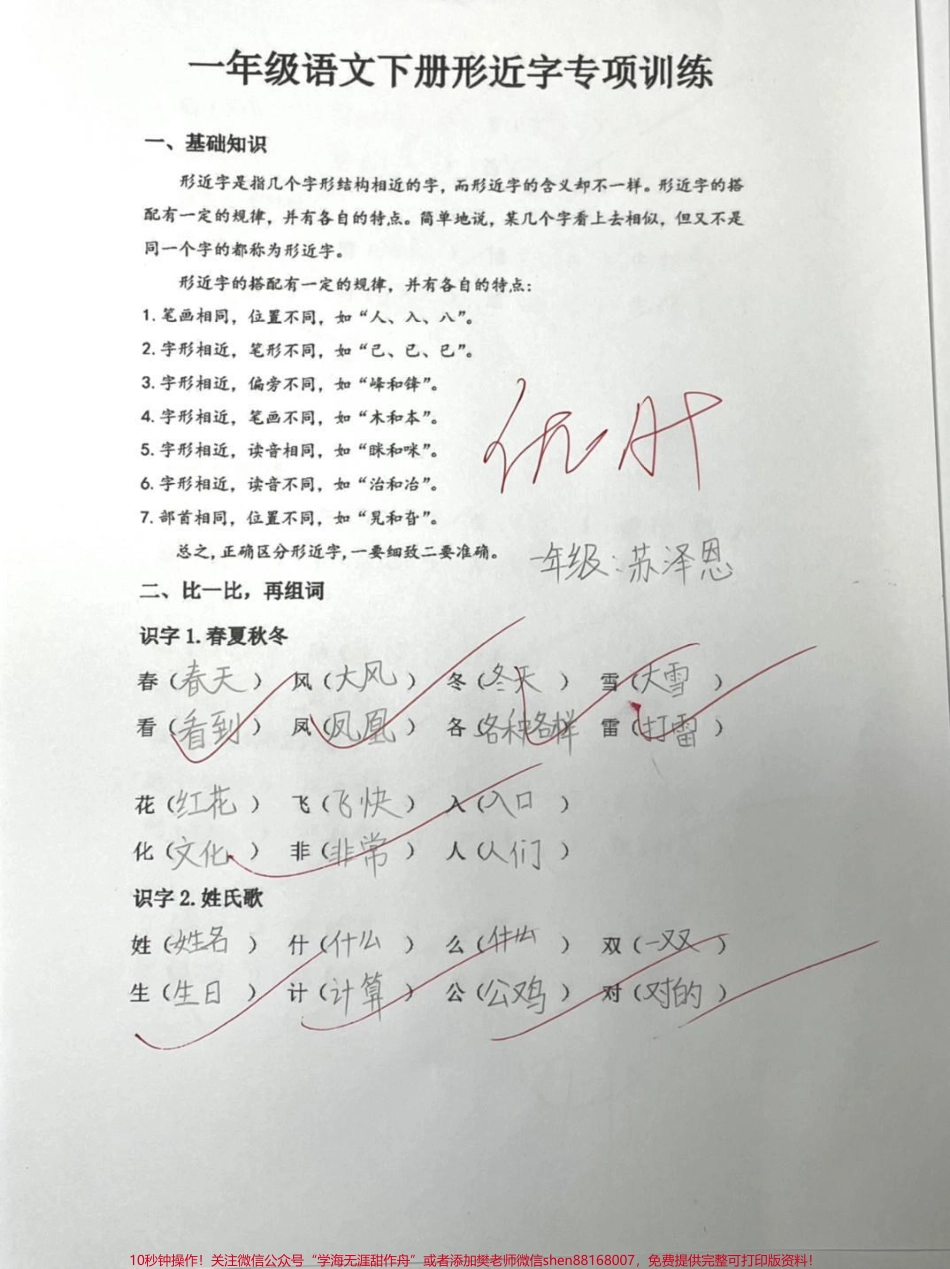 一年级语文下册形近字专项训练
一、基础知识
形近字是指几个字形结构相近的字，而形近字的含义却不一样。形近字的搭
配有一定的规律，并有各自的特点。简单地说，某几个字看上去相似，但又不是
同一个字的都称为形近字。
形近字的搭配有一定的规律，并有各自的特点：
1.笔画相同，位置不同，如“人、入、八”。
2.字形相近，笔形不同，如“己、已、巳”。
3.字形相近，偏旁不同，如“峰和锋”。
4.字形相近，笔画不同，如“木和本”。
5.字形相近，读音相同，如“眯和咪”。
6.字形相近，读音不同，如“治和冶”。
7.部首相同，位置不同，如“晃和旮”。
优A+
总之，正确区分形近字，一要细致二要准确。
一年级：苏泽恩
二、比一比，再组词
识字 1.春夏秋冬
春（春天） 风（大风） 冬（冬天） 雪（大雪）
看（看到） 凤（凤凰） 各（各种各样 雷（打雷）
花（红花） 飞（飞快） 入（入口）
化（文化） 非（非常） 人（人们）
识字 2.姓氏歌
姓（姓名） 什（什么） 么（什么） 双（一双）
生（生日） 计（计算） 公（公鸡） 对（对的）
10秒钟操作！关注微信公众号“学海无涯甜作舟”或者添加樊老师微信shen88168007，免费提供完整可打印版资料！